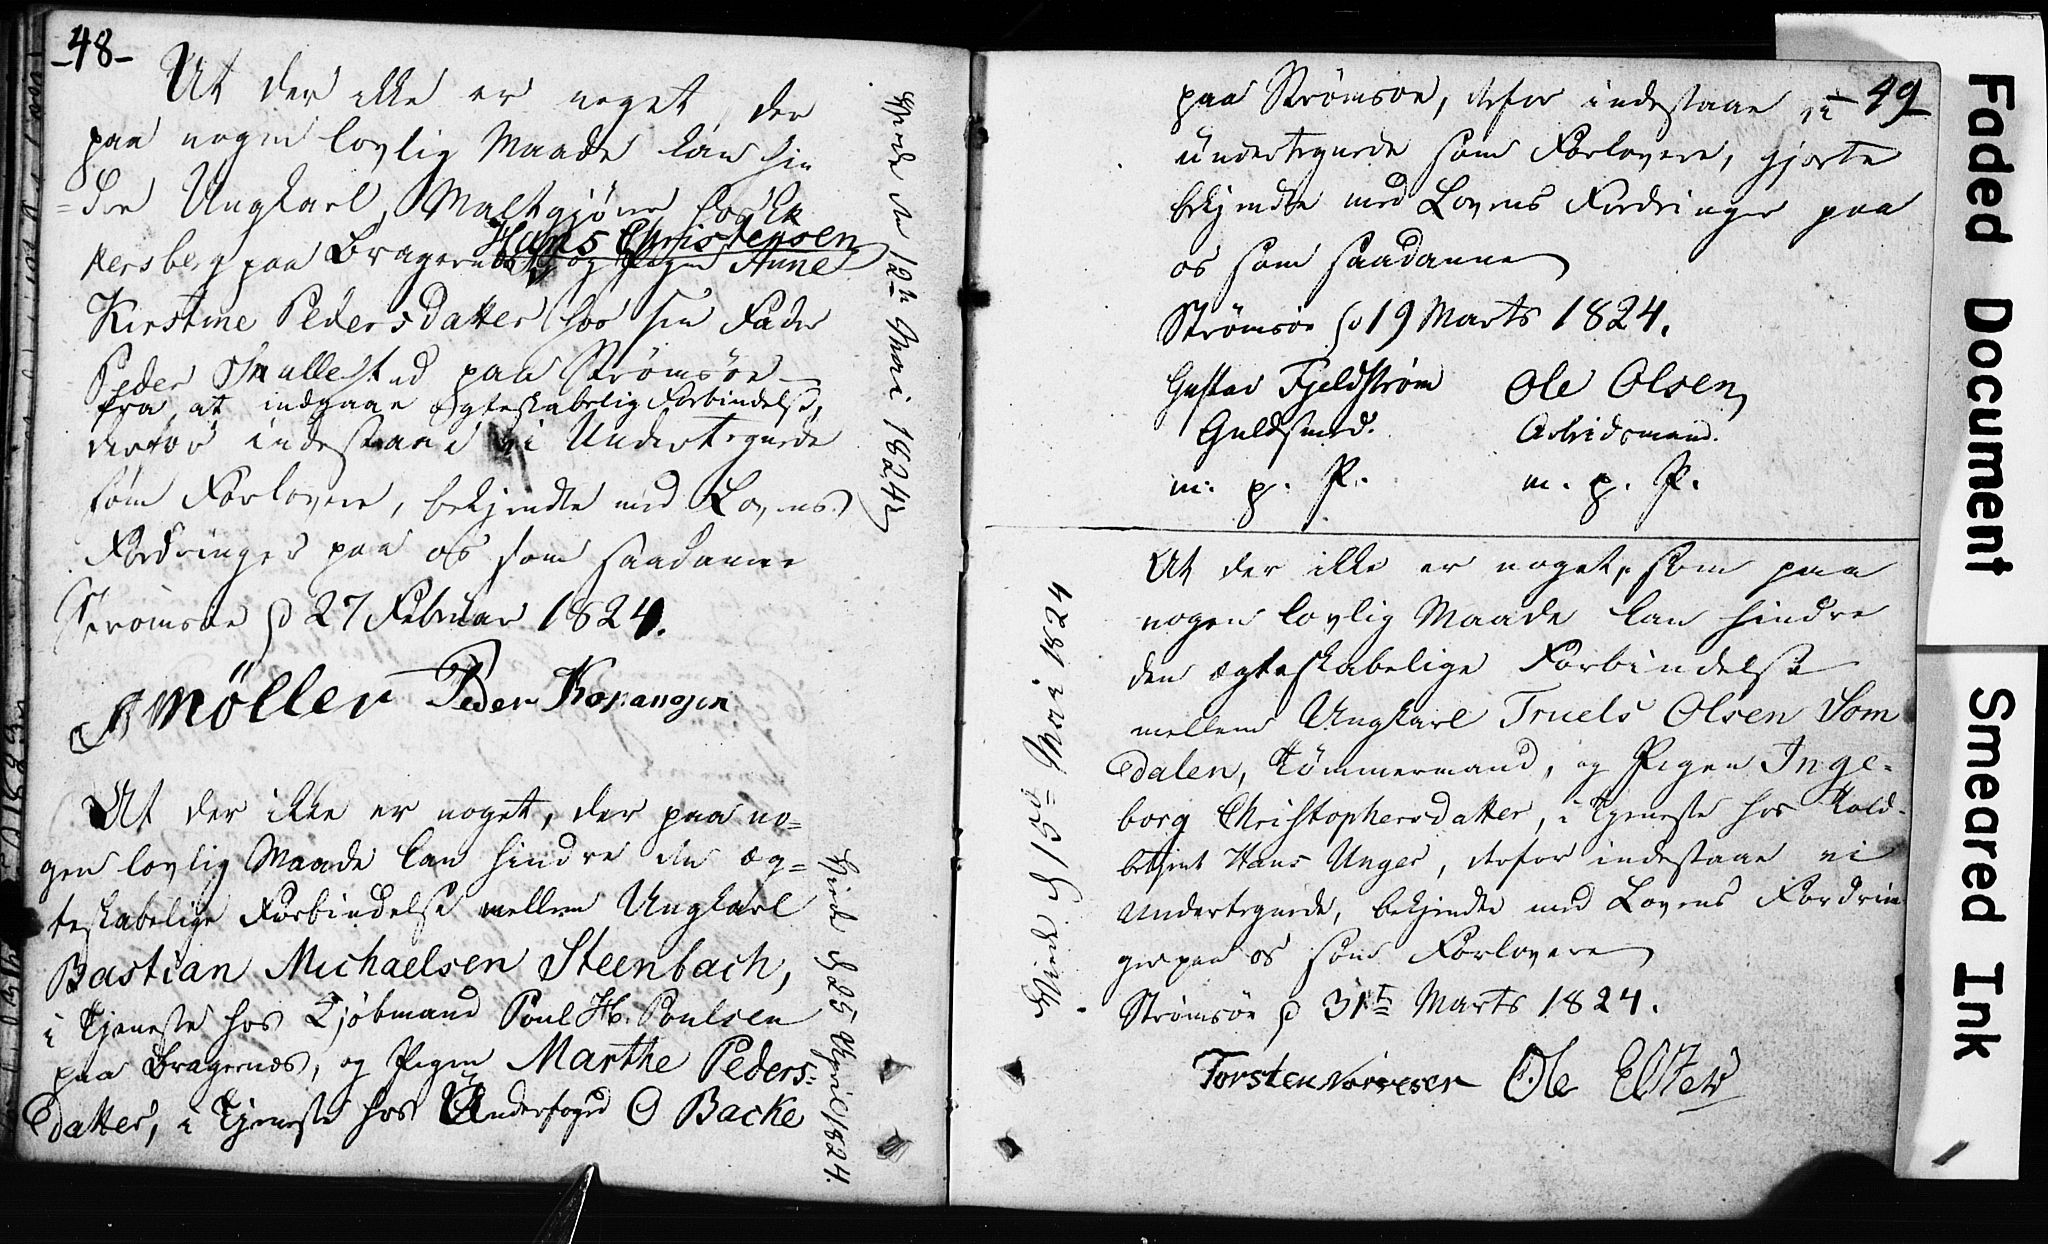 -48-
At der ikke er noget, der
paa nogen lovlig Maade kan hin
=dre Ungkarl, Maltgjører hos Ek
Hans Christensen
kersberg paa Bragernæs, og Pigen Anne
Kirstine Pedersdatter hos sin Fader
Peder Smallestad paa Strømsøe
fra, at indgaae Ægteskabelig Forbindelse,
derfor indestaae vi Undertegnede
som Forlovere, bekjendte med Lovens
Fordringer paa os som saadanne
Strømsøe d 27 Februar 1824.
Møller Peder
Viede den 12te Mai 1824
At der ikke er noget, der paa no=
gen lovlig Maade kan hindre den æg=
teskabelige Forbindelse mellem Ungkarl
Bastian Michaelsen Steenbach,
i Tjeneste hos Kjøbmand Poul H. Poulsen
paa Bragernæs, og Pigen Marthe Peders=
datter, i Tjeneste hos Underfoged O Backe
Viede d 25 April 1824.
49
paa Strømsøe, derfor indestaae vi
undertegnede som Forlovere, gjorte
bekjendte med Lovens Fordringer paa
os som saadanne
Strømsøe d 19 Marts 1824.
Gustav Fjeldstrøm Ole Olsen
Guldsmed. Arbeidsmand.
m. p. P. m. p. P.
At der ikke er noget, som paa
nogen lovlig Maade kan hindre
den ægteskabelige Forbindelse
mellem Ungkarl Truels Olsen Som
dalen, Tømmermand, og Pigen Inge=
borg Christophersdatter, i Tjeneste hos Told=
betjent Hans Unger, derfor indestaae vi
Undertegnede, bekjendte med Lovens Fordrin
ger paa os som Forlovere
Strømsøe d 31te Marts 1824.
Torsten Ole
Viede d 15de Mai 1824
Faded Document
Smeared Ink